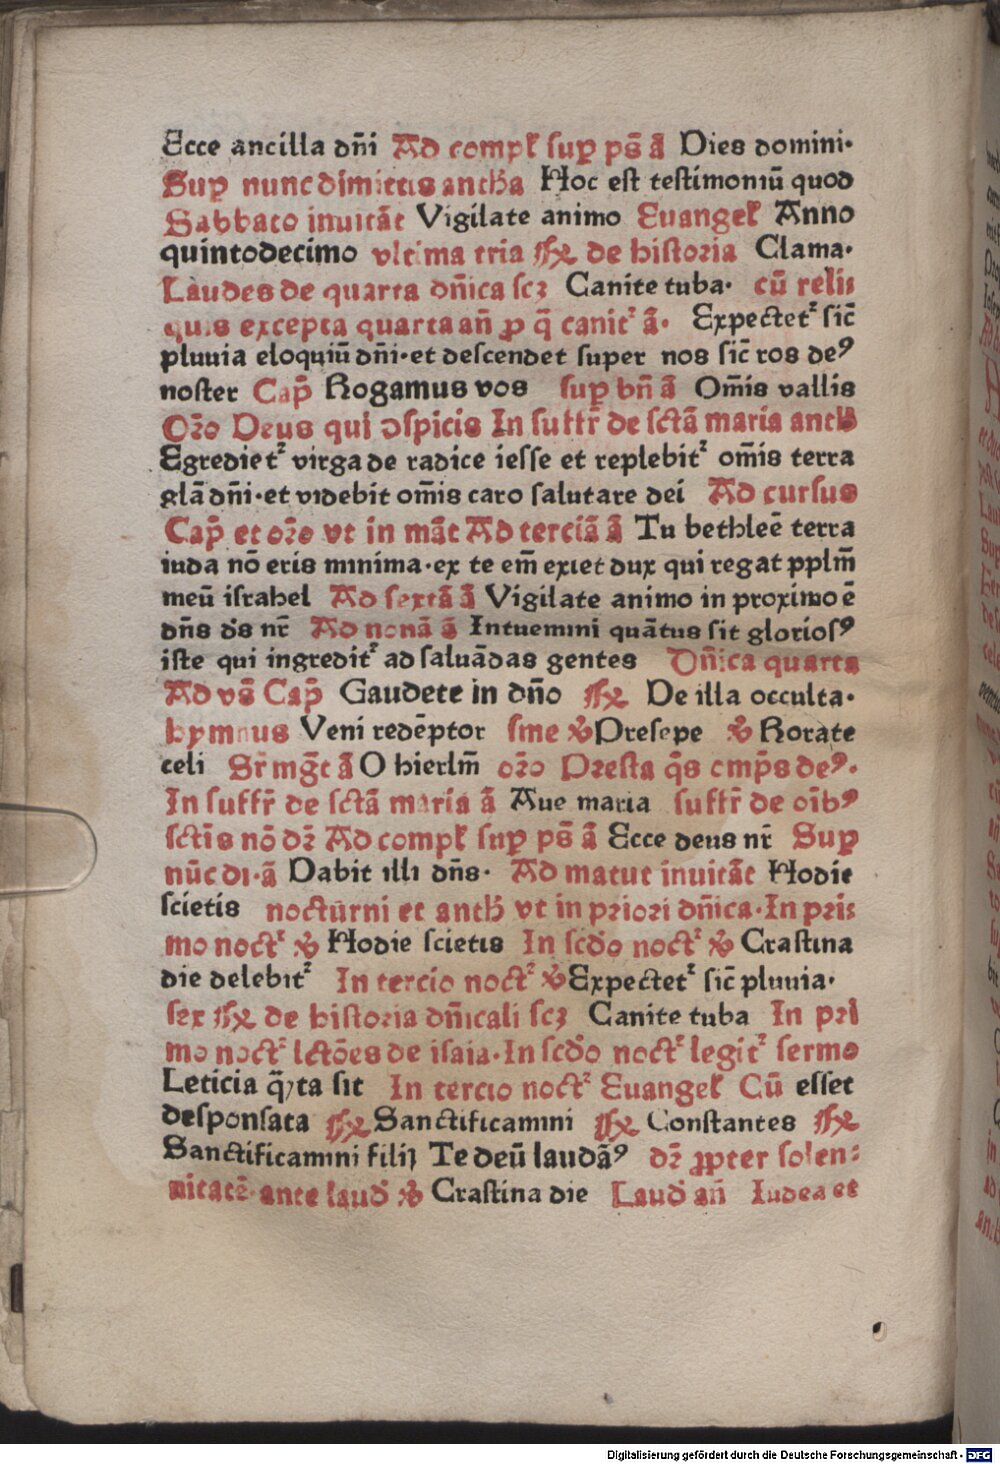 Ecce ancilla dn̄i Ad compl̕ sup̱ ps̄ ā Dies domini·
Sup̱ nunc dimittis antħa Hoc est testimoniū quod
Sabbato inuitāt Vigilate animo Euangel̕ Anno
quintodecimo vltima tria ℟ de historia Clama·
Laudes de quarta dn̄ica scꝫ Canite tuba· cū relis
quis excepta quarta an̄ ꝓ q̄ canit᷑ ā· Expectet᷑ sic̄
pluuia eloquiū dn̄i·et descendet super nos sic̄ ros deꝰ
noster Cap̄ Rogamus vos sup̱ bn̄ ā Om̄is vallis
Oꝛ̄o Deus qui ↄspicis In suffr̄ de sctā maria antħ
Egrediet᷑ virga de radice iesse et replebit᷑ om̄is terra
glā dn̄i·et videbit om̄is caro salutare dei Ad cursus
Cap̄ et oꝛ̄o vt in māt Ad terciā ā Tu bethleē terra
iuda nō eris minima·ex te em̄ exiet dux qui regat pplm̄
meū israhel Ad sextā ā Vigilate animo in proximo ē
dn̄s ds̄ nr̄ Ad nonā ā Intuemini quātus sit gloriosꝰ
iste qui ingredit᷑ ad saluādas gentes Dn̄ica quarta
Ad vs̄ Cap̄ Gaudete in dn̄o ℟ De illa occulta·
hymnus Veni redēptor sine ℣ Presepe ℣ Rorate
celi Sr̄ mḡt ā O hierlm̄ oꝛ̄o Presta q̄s omp̄s deꝰ·
In suffr̄ de sctā maria ā Aue maria suffr̄ de oib̄ꝰ
sctīs nō dꝛ̄ Ad compl̕ sup̱ ps̄ ā Ecce deus nr̄ Sup̱
nūc di·ā Dabit illi dn̄s· Ad matut inuitāt Hodie
scietis nocturni et antħ vt in priori dn̄ica·In pris
mo noct᷑ ℣ Hodie scietis In scd̄o noct᷑ ℣ Crastina
die delebit᷑ In tercio noct᷑ ℣ Expectet᷑ sic̄ pluuia·
sex ℟ de historia dn̄icali scꝫ Canite tuba In pri
mo noct᷑ lctōes de isaia·In scd̄o noct᷑ legit᷑ sermo
Leticia q̄ꝫta sit In tercio noct᷑ Euangel̕ Cū esset
desponsata ℟ Sanctificamini ℟ Constantes ℟
Sanctificamini filij Te deū laudāꝰ dꝛ̄ ꝓpter solen:
nitatē·ante laud̕ ℣ Crastina die Laud̕ an̄ Iudea et
Digitalisierung gefördert durch die Deutsche Forschungsgemeinschaft · DFG